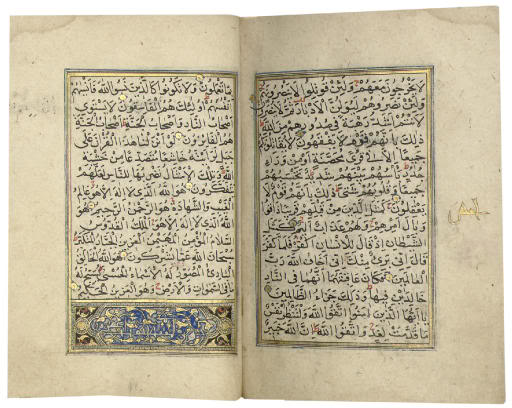 لا يخرجون معهم ولئن قوتلوا لا ينصرونهم
ولئن نصروهم ليولن الأدبار ثم لا ينصرون
لأنتم أشد رهبة في صدورهم من الله
ذلك بأنهم قوم لا يفقهون لا يقاتلونكم
جميعا إلا في قرى محصنة أو من وراء
جدر بأسهم بينهم شديد تحسبهم
جميعا وقلوبهم شتى ذلك بأنهم قوم لا
يعقلون كمثل الذين من قبلهم قريبا ذاقوا
وبال أمرهم ولهم عذاب أليم كمثل
الشيطان إذ قال للإنسان اكفر فلما كفر
قال إني بريء منك إني أخاف الله رب
العالمين فكان عاقبتهما أنهما في النار
خالدين فيها وذلك جزاء الظالمين
يا أيها الذين آمنوا اتقوا الله ولتنظر نفس
ما قدمت لغد واتقوا الله إن الله خبير
بما تعملون ولا تكونوا كالذين نسوا الله فأنساهم
أنفسهم أولئك هم الفاسقون لا يستوي
أصحاب النار وأصحاب الجنة أصحاب الجنة
هم الفائزون لو أنزلنا هذا القرآن على
جبل لرأيته خاشعا متصدعا من خشية
الله وتلك الأمثال نضربها للناس لعلهم
يتفكرون هو الله الذي لا إله إلا هو عالم
الغيب والشهادة هو الرحمن الرحيم هو
الله الذي لا إله إلا هو الملك القدوس
السلام المؤمن المهيمن العزيز الجبار المتكبر
سبحان الله عما يشركون هو الله الخالق
البارئ المصور له الأسماء الحسنى يسبح له
ما في السموات والأرض وهو العزيز الحكيم